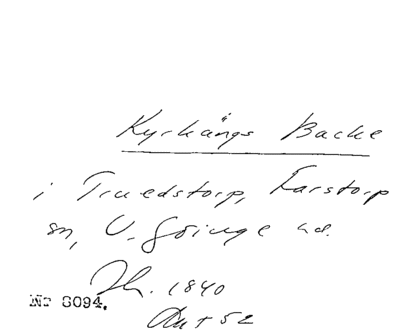 Kyrkängs Backe
i Truedstorp, Farstorp
sn, V. Göinge hd.
Th. 1840
Nr 8094.
Aut 52